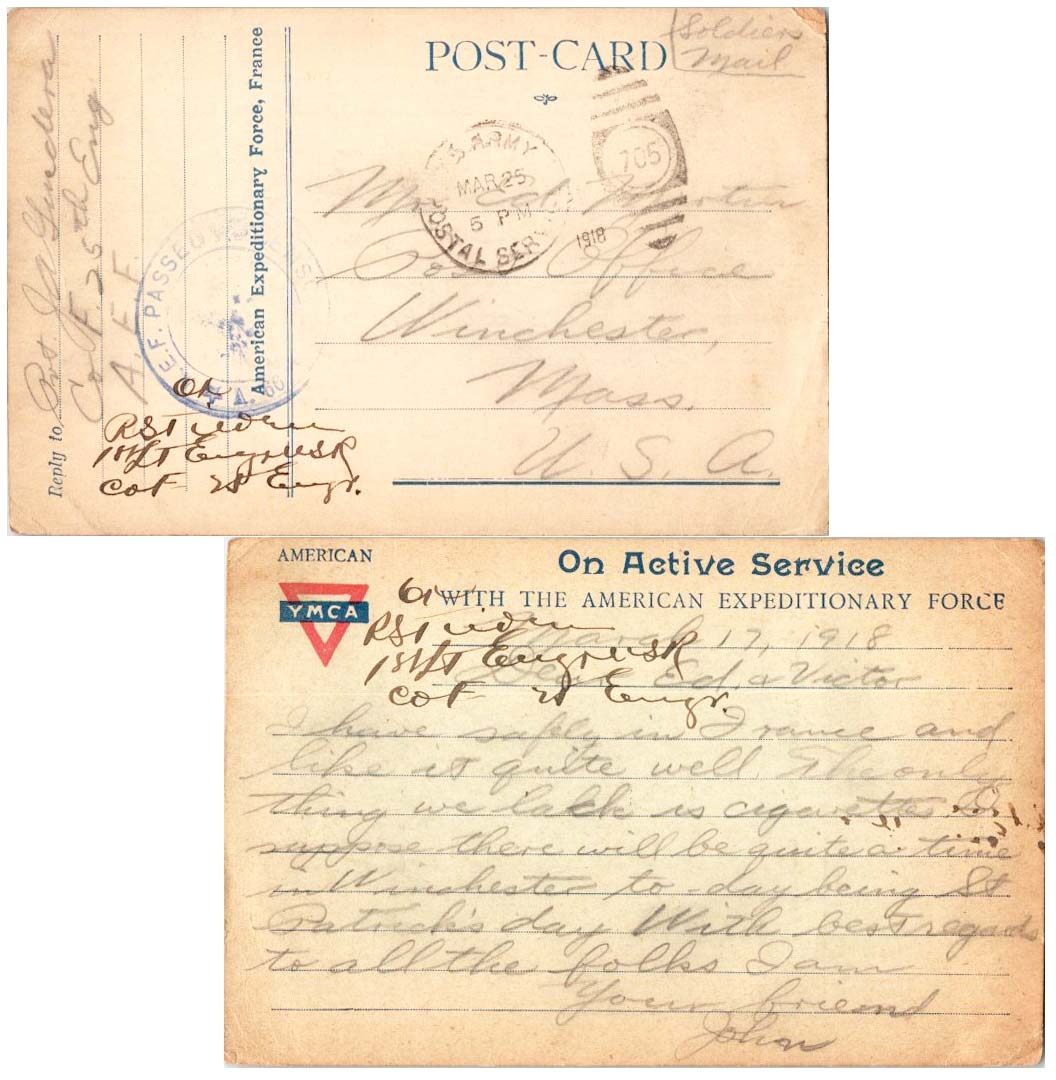 POST-CARD
Soldier
Mail
U.S. ARMY
MAR 25
5 PM
POSTAL SERVICE
1918
705
Mr. Ed. Martin
Post Office
Winchester,
Mass.
U. S. A.
American Expeditionary Force, France
Reply to Pvt. J
Co F. 25th Eng
A. E. F.
A.E.F. PASSED AS CENSORED
OK
1st Lt Engr USR
Co F 25 Engr.
AMERICAN
YMCA
On Active Service
WITH THE AMERICAN EXPEDITIONARY FORCE
OK
1st Lt Engr USR
Co F 25 Engr.
March 17, 1918
Dear Ed. & Victor
I have safly in France and
like it quite well. The only
thing we lack is cigarettes I
suppose there will be quite a time
in Winchester to-day being St
Patrick's day With best regards
to all the folks I am
Your friend
John